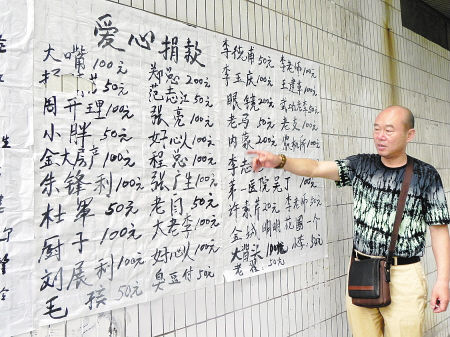 爱心捐款
大嘴100元
50元
周开理100元
小胖50元
金大房产100元
朱锋利100元
杜军50元
厨子100元
刘展利100元
毛 50元
郑总200元
范志江50元
张亮100元
好心人100元
程总100元
张广生100元
老闫50元
大老李100元
好心人100元
臭豆付50元
李 甫50元
李玉庆100元
眼镜200元
老马50元
内 200元
李志
第一医院吴丁100元
许素芹20元
金城
大背头100元
老 50元
李老师100元
王建军100元
老文100元
100元
李老师50元
花圈一个
50元